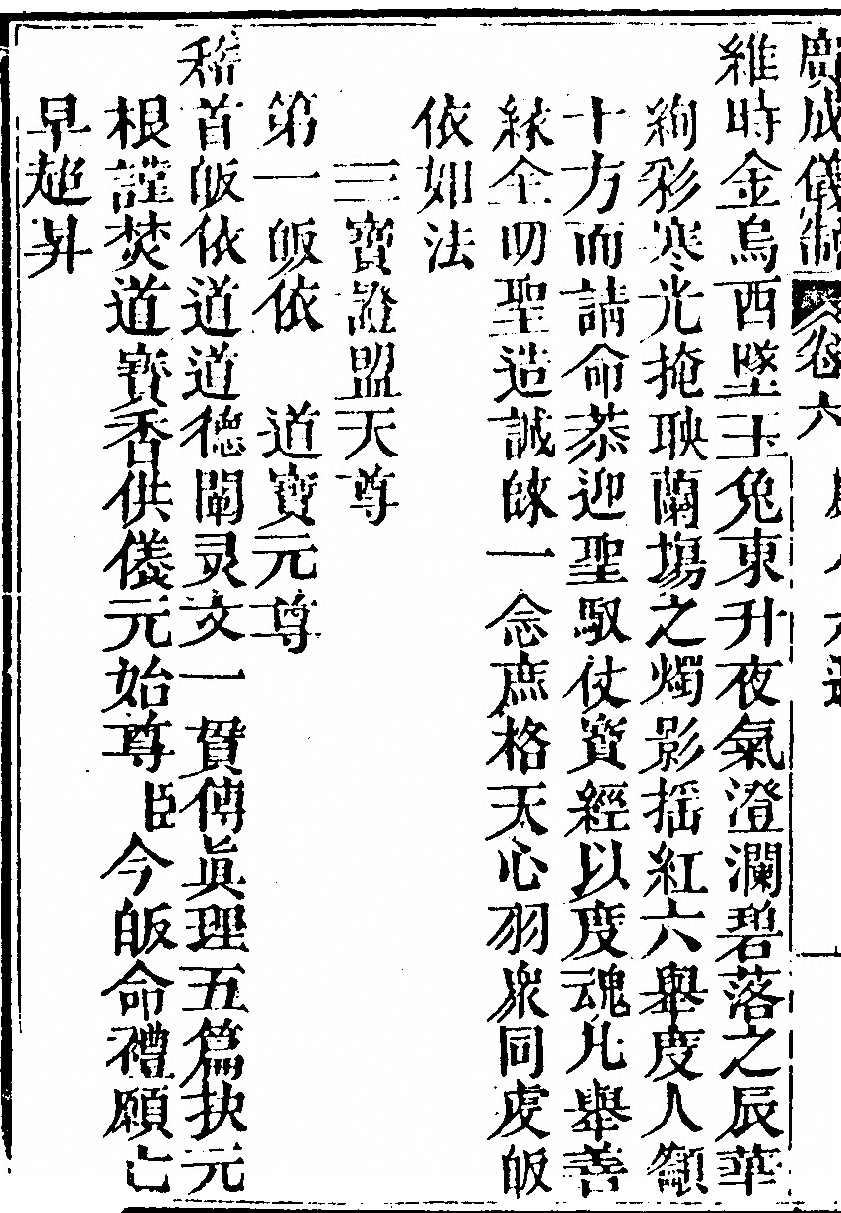 廣成儀制 卷六
維時金烏西墜玉兔東升夜氣澄瀾碧落之辰華
絢彩寒光掩映蘭塲之燭影揺紅六舉度人籲
十方而請命恭迎聖馭仗寳經以度魂凢舉善
緣全叨聖造誠餗一念庶格天心羽衆同虔皈
依如法
三寳證盟天尊
第一皈依 道寳元尊
稽首皈依道道德闡灵文一貫傳眞理五篇抉元
根謹焚道寳香供儀元始尊臣今皈命禮願亡
早超昇